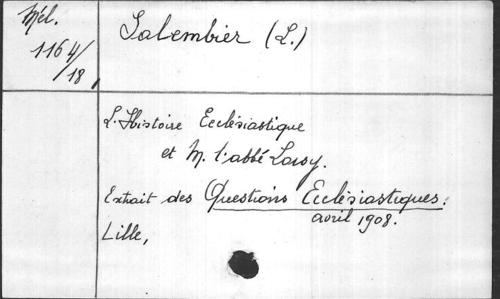 Mél.
1164/18
Salembier (L.)
L'Histoire Ecclésiastique
et M. l'abbé Loisy.
Extrait des Questions Ecclésiastiques:
avril 1908.
Lille,